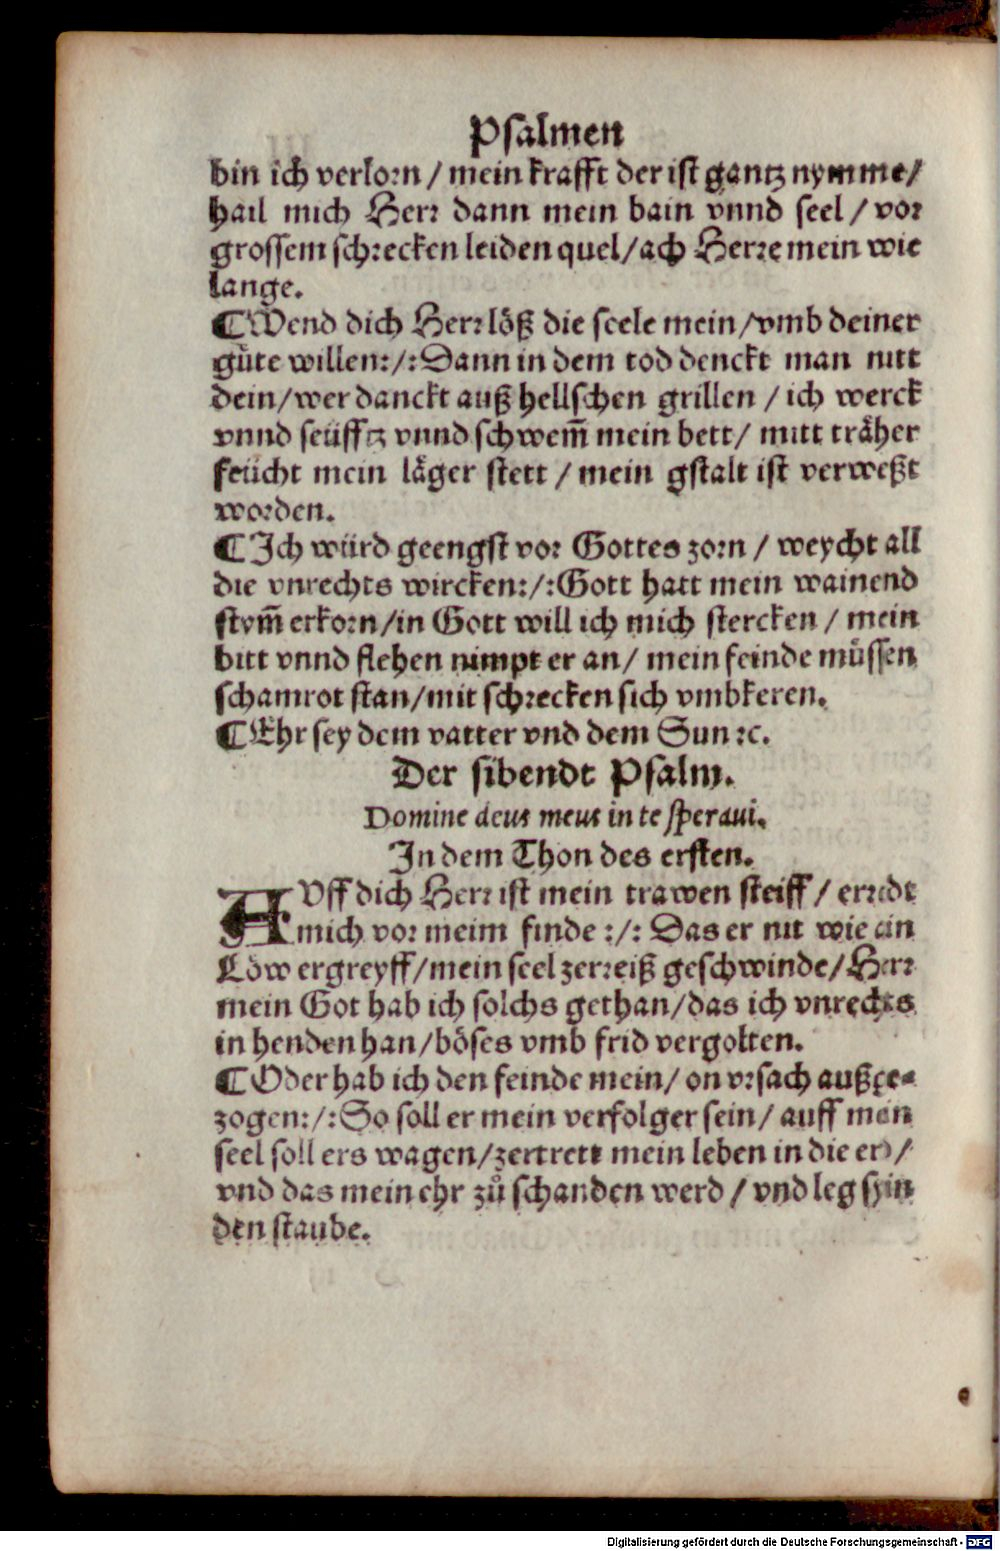 Psalmen
bin ich verlorn / mein krafft der ist gantz nymme /
hail mich Herr dann mein bain vnnd seel / vor
grossem schrecken leiden quel / ach Herre mein wie
lange.
¶ Wend dich Herr löß die seele mein / vmb deiner
guͤte willen :/: Dann in dem tod denckt man nitt
dein / wer danckt auß hellschen grillen / ich werck
vnnd seüfftz vnnd schwem̃ mein bett / mitt träher
feücht mein läger stett / mein gstalt ist verweßt
worden.
¶ Ich würd geengst vor Gottes zorn / weycht all
die vnrechts wircken :/: Gott hatt mein wainend
stym̃ erkorn / in Gott will ich mich stercken / mein
bitt vnnd flehen nimpt er an / mein feinde muͤssen
schamrot stan / mit schrecken sich vmbkeren.
¶ Ehr sey dem vatter vnd dem Sun ꝛc.
Der sibendt Psalm.
Domine deus meus in te speraui.
In dem Thon des ersten.
AVff dich Herr ist mein trawen steiff / erredt
mich vor meim finde :/: Das er nit wie ein
Löw ergreyff / mein seel zerreiß geschwinde / Herr
mein Got hab ich solchs gethan / das ich vnrechts
in henden han / böses vmb frid vergolten.
¶ Oder hab ich den feinde mein / on vrsach außge-
zogen :/: So soll er mein verfolger sein / auff mein
seel soll ers wagen / zertrett mein leben in die erd /
vnd das mein ehr zuͦ schanden werd / vnd leg sy in
den staube.
Digitalisierung gefördert durch die Deutsche Forschungsgemeinschaft - DFG